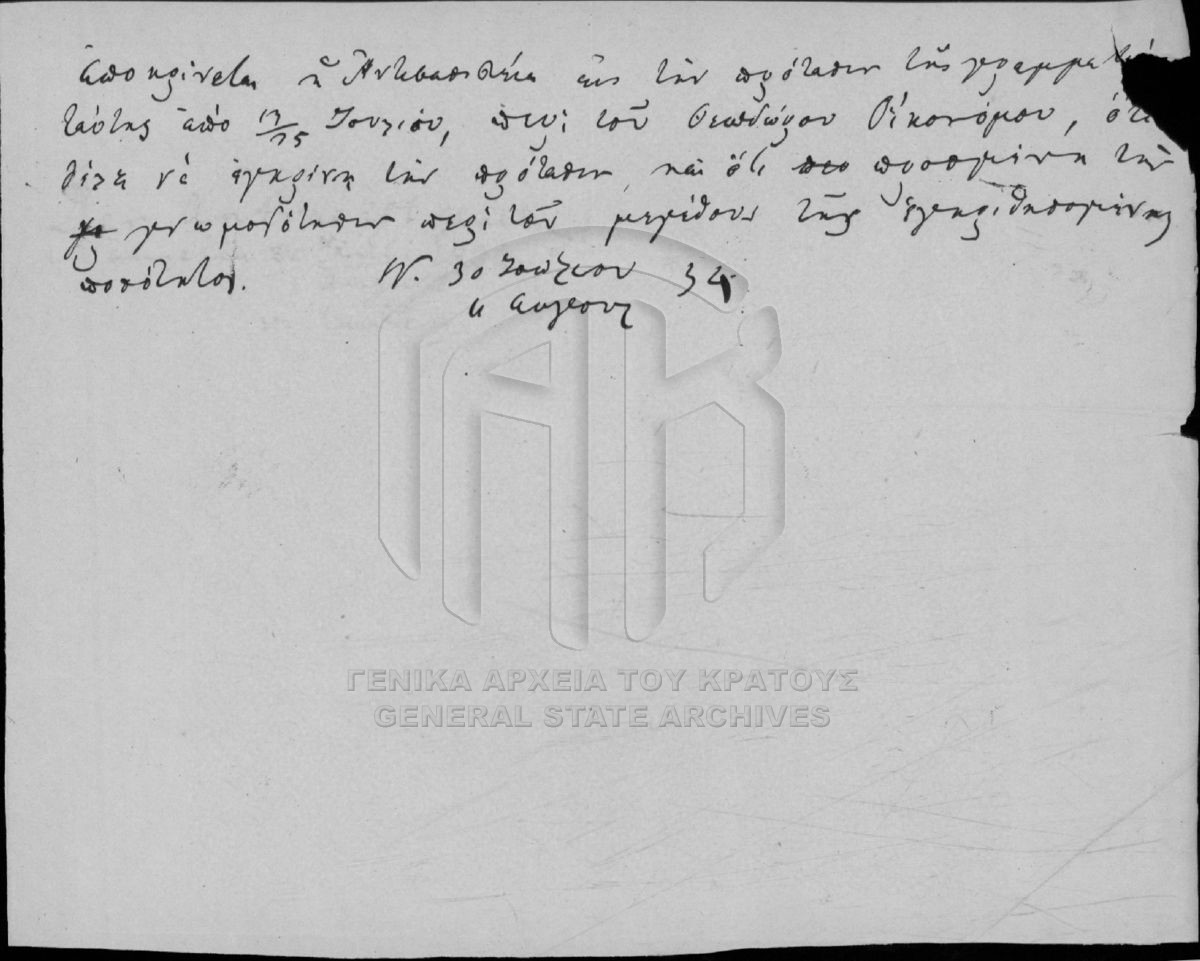 ἀποκρίνεται ἡ Ἀντιβασιλεία εἰς τὴν πρότασιν τῆς γραμματείας
ταύτης ἀπὸ 13/25 Ἰουλίου, περὶ τοῦ Θεοδώρου Οἰκονόμου, ὅτι
θέλει νὰ ἐγκρίνῃ τὴν πρότασιν, καὶ ὅτι προσμένει τὴν
γνωμοδότησιν περὶ τοῦ μεγέθους τῆς ἐγκριθησομένης
ποσότητος. Ν. 30 Ἰουλίου 34
ΓΕΝΙΚΑ ΑΡΧΕΙΑ ΤΟΥ ΚΡΑΤΟΥΣ
GENERAL STATE ARCHIVES